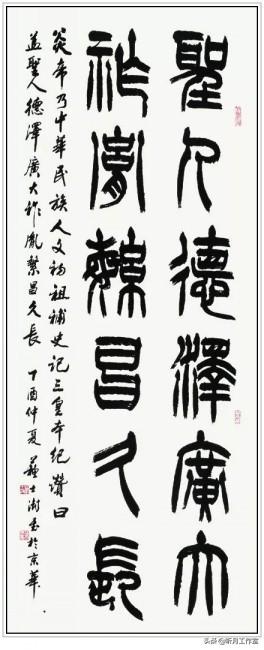 聖人德澤廣大
祚胤緐昌久長
炎帝乃中華民族人文初祖補史記三皇本紀讚曰
盖聖人德澤廣大祚胤繁昌久長 丁酉仲夏 蘇士澍書於京華
头条 @昕月工作室